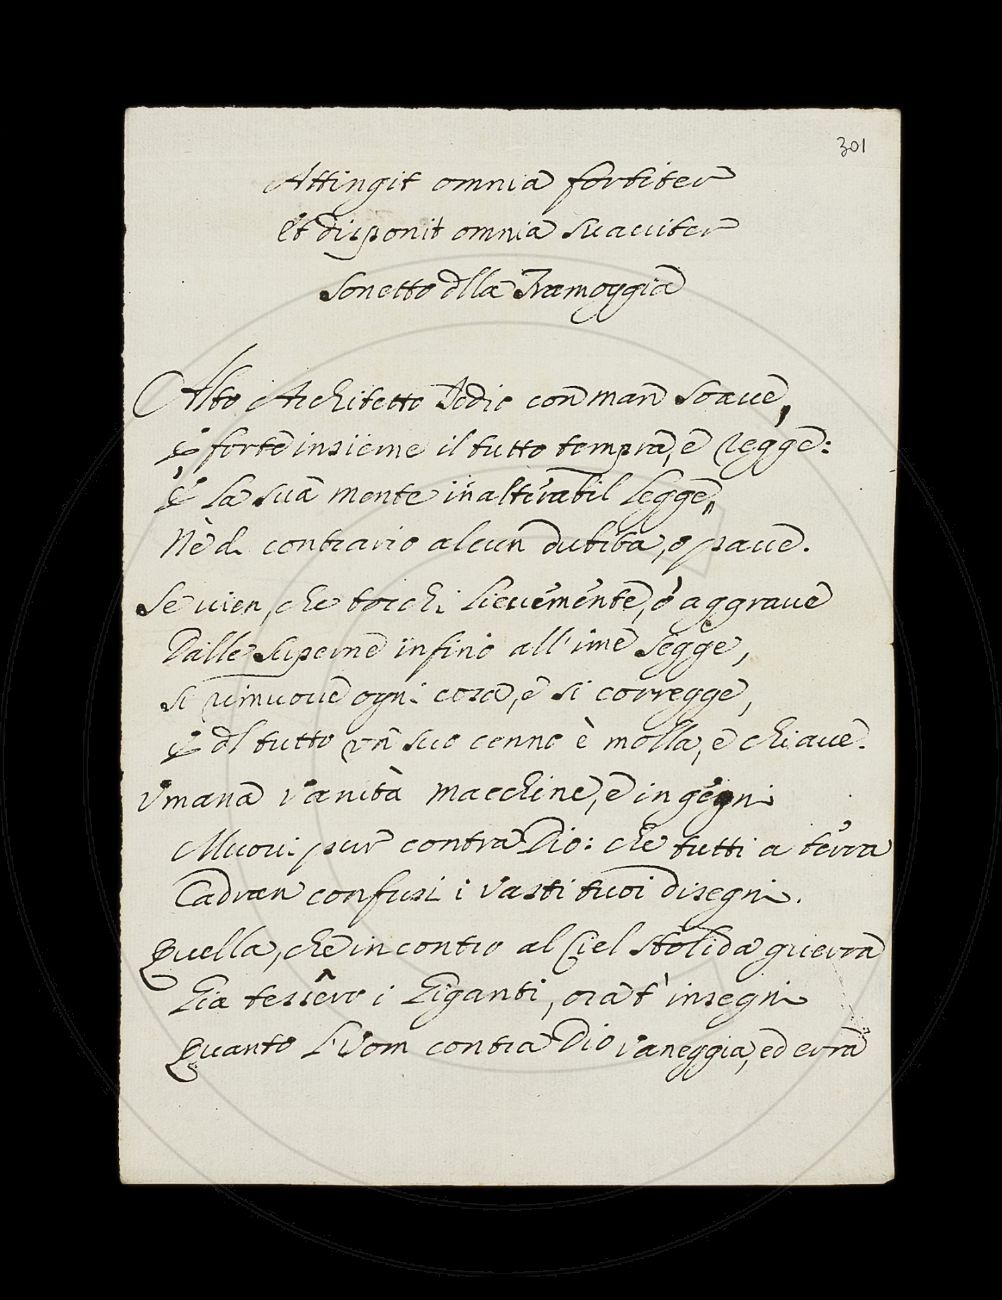 301
Attingit omnia fortiter
Et disponit omnia suauiter
Sonetto dlla Tramoggia
Alto Architetto Iddio con man soaue,
e forte insieme il tutto tempra, e regge:
E la sua mente inalterabil legge,
Nè d. contrario alcun dubita, o paue.
Se uien, che tocchi lieuemente, o aggraue
Dalle superne infino all'ime segge,
si rimuoue ogni cosa, e si corregge,
e dl tutto vn suo cenno è molla, e chiaue.
Vmana vanità macchine, e ingegni
Muoui pur contra Dio: che tutti a terra
Cadran confusi i vasti tuoi disegni.
Quella, che incontro al Ciel stolida guerra
Gia fessero i Giganti, ora t'insegni
Quanto l'Vom contra Dio vaneggia, ed erra